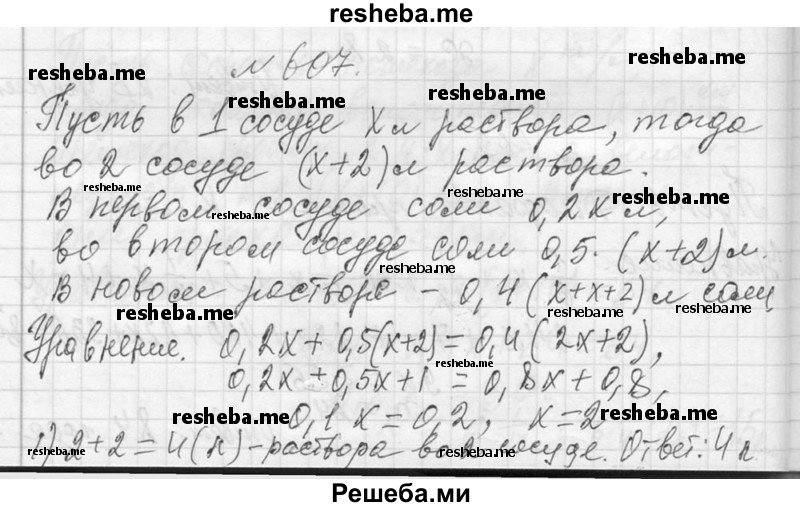 resheba.me
№ 607.
resheba.me resheba.me
resheba.me resheba.me
Пусть в 1 сосуде x л раствора, тогда
во 2 сосуде (x+2) л раствора.
resheba.me resheba.me resheba.me
В первом сосуде соли 0,2x л,
resheba.me
во втором сосуде соли 0,5·(x+2) л.
resheba.me
В новом растворе – 0,4(x+x+2) л соли
resheba.me resheba.me
Уравнение. 0,2x+0,5(x+2)=0,4(2x+2),
resheba.me
0,2x+0,5x+1=0,8x+0,8,
resheba.me resheba.me
0,1x=0,2, x=2
1) 2+2=4(л)–раствора во 2 сосуде. Ответ: 4 л
resheba.me resheba.me resheba.me
Решеба.ми